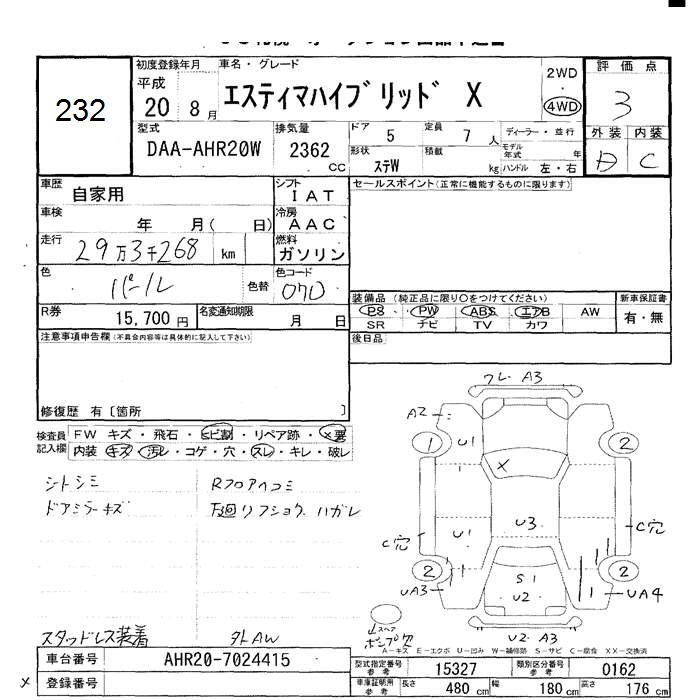 232
初度登録年月
平成
20 8月
車名・グレード
エスティマハイブリッド X
2WD
4WD
評価点
3
外装 内装
B C
型式
DAA-AHR20W
排気量
2362 CC
ドア 5
定員 7 人
形状 ステW
積載 kg
ディーラー・並行
モデル年式 年
ハンドル 左・右
車歴 自家用
シフト IAT
車検 年 月( 日)
冷房 AAC
走行 29万3千268 km
燃料 ガソリン
色 パール 色替
色コード 070
R券 15,700円
名変通知期限 月 日
セールスポイント(正常に機能するものに限ります)
装備品(純正品に限り○をつけてください)
PS PW ABS エアB AW
SR ナビ TV カワ
新車保証書
有・無
後日品
注意事項申告欄(不具合内容等は具体的に記入して下さい)
修復歴 有〔箇所 〕
検査員記入欄
FW キズ・飛石・ヒビ割・リペア跡・×要
内装 キズ・汚レ・コゲ・穴・スレ・キレ・破レ
シトシミ
ドアミラーキズ
Rフロアヘコミ
下廻リフショウ ハガレ
スタッドレス装着
外AW
ワレ・A3
A2
1
U1
2
X
C穴
U1
U3
C穴
2
S1
U2
2
UA3
UA4
U2・A3
A-キズ E-エクボ U-凹み W-補修跡 S-サビ C-腐食 XX-交換済
車台番号 AHR20-7024415
× 登録番号
型式指定番号参考 15327
類別区分番号参考 0162
車庫証明用参考 長さ 480 cm 幅 180 cm 高さ 176 cm